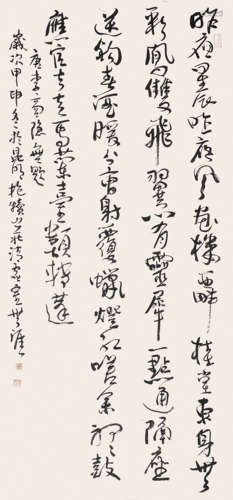 昨夜星辰昨夜風畫樓西畔桂堂東身無
彩鳳雙飛翼心有靈犀一點通隔座
送鈎春酒暖分曹射覆蠟燈紅嗟余聽鼓
應官去走馬蘭臺類轉蓬
唐李商隱無題
歲次甲申冬於昆明